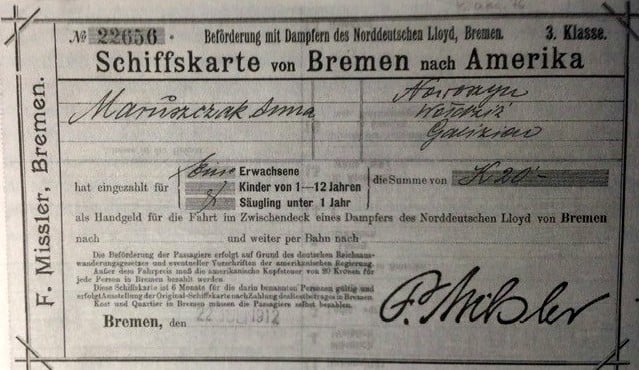 № 22656 • Beförderung mit Dampfern des Norddeutschen Lloyd, Bremen. 3. Klasse.
Schiffskarte von Bremen nach Amerika
F. Missler, Bremen.
Maruszczak Anna
Galizien
hat eingezahlt für
Eine Erwachsene
Kinder von 1—12 Jahren
Säugling unter 1 Jahr
die Summe von K 20.-
als Handgeld für die Fahrt im Zwischendeck eines Dampfers des Norddeutschen Lloyd von Bremen
nach und weiter per Bahn nach
Die Beförderung der Passagiere erfolgt auf Grund des deutschen Reichsaus-
wanderungsgesetzes und eventueller Vorschriften der amerikanischen Regierung.
Außer dem Fahrpreis muß die amerikanische Kopfsteuer von 20 Kronen für
jede Person in Bremen bezahlt werden.
Diese Schiffskarte ist 6 Monate für die darin benannten Personen gültig und
erfolgt Ausstellung der Original-Schiffskarte nach Zahlung des Restbetrages in Bremen.
Kost und Quartier in Bremen müssen die Passagiere selbst bezahlen.
Bremen, den 22 1912
F. Missler